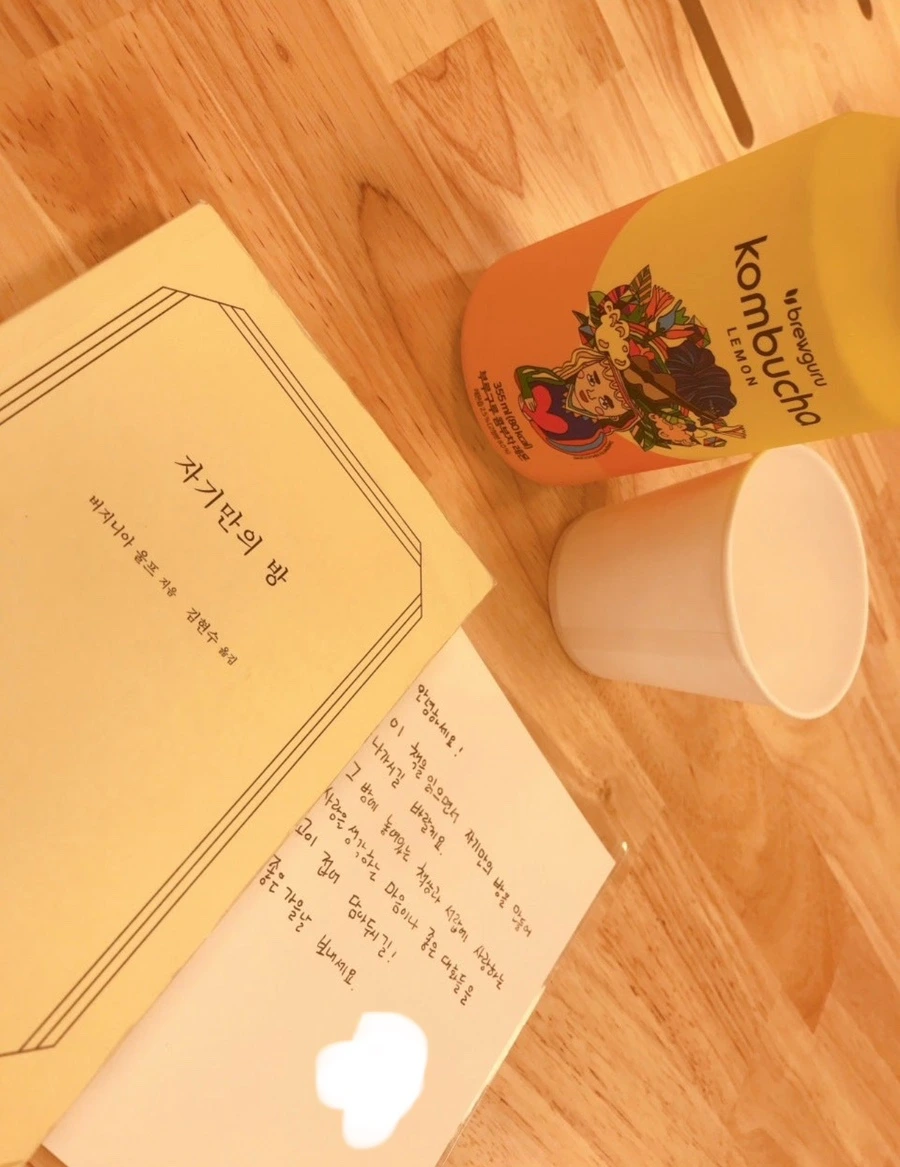 자기만의 방
버지니아 울프 지음 김현수 옮김
안녕하세요!
이 책을 읽으면서 자기만의 방을 만들어
나가시길 바랄게요.
그 방에 놓여있는 책상과 서랍에 사랑하는
사람을 생각하는 마음이나 좋은 대화들을
고이 접어 담아두시길!
좋은 가을날 보내세요.
brewguru
kombucha
LEMON
355 ml (80 kcal)
부루구루 콤부차 레몬